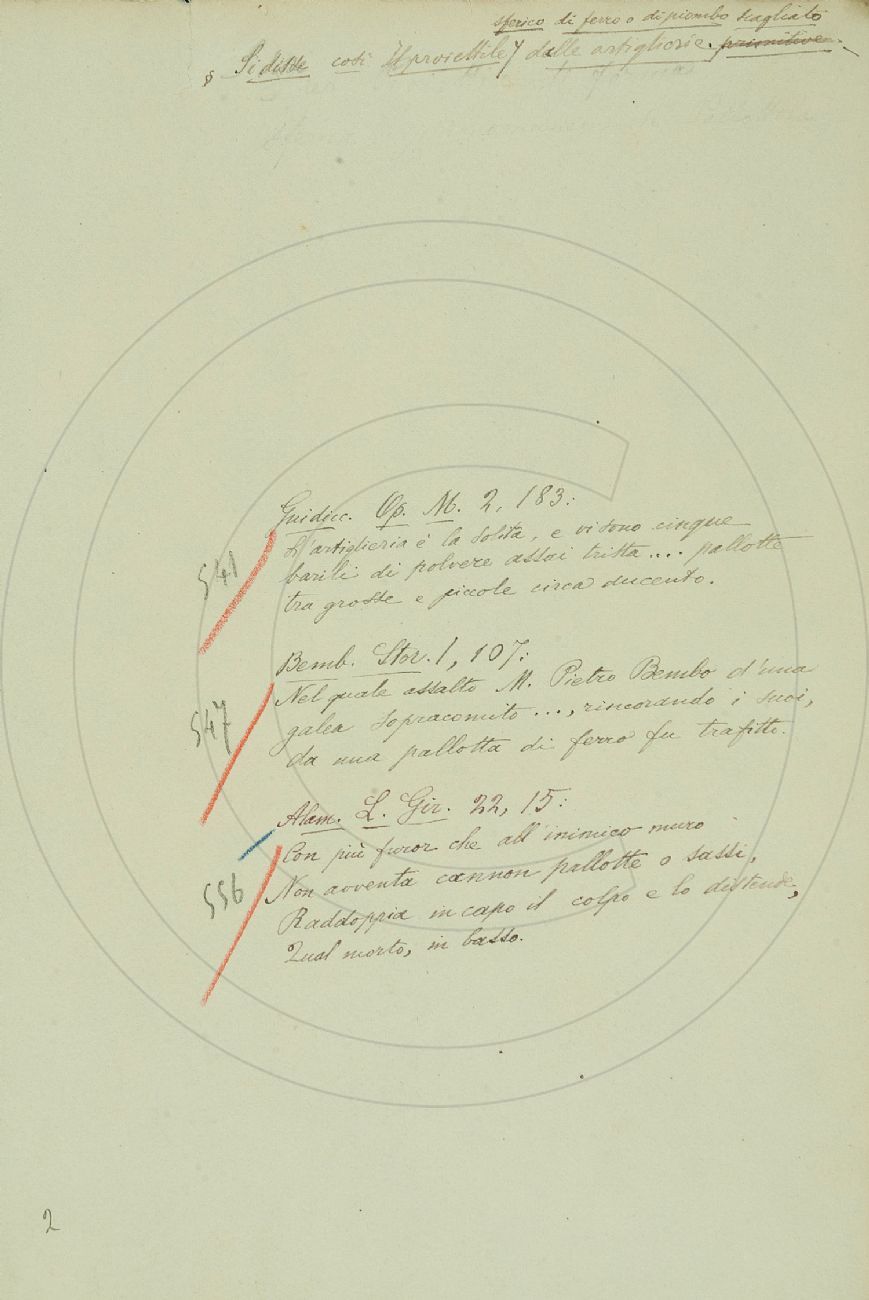 sferico di ferro o di piombo scagliato
§ Si disse così il proiettile dalle artiglierie primitive.
Guidicc. Op. M. 2, 183:
L'artiglieria è la solita, e vi sono cinque
barili di polvere assai trista.... pallotte
tra grosse e piccole circa ducento.
541
Bemb. Stor. 1, 107:
Nel quale assalto M. Pietro Bembo d'una
galea sopracomito ..., rincorando i suoi,
da una pallotta di ferro fu trafitto.
547
Alam. L. Gir. 22, 15:
Con più furor che all'inimico muro
Non avventa cannon pallotte o sassi,
Raddoppia in capo il colpo e lo distende,
Qual morto, in basso.
556
2